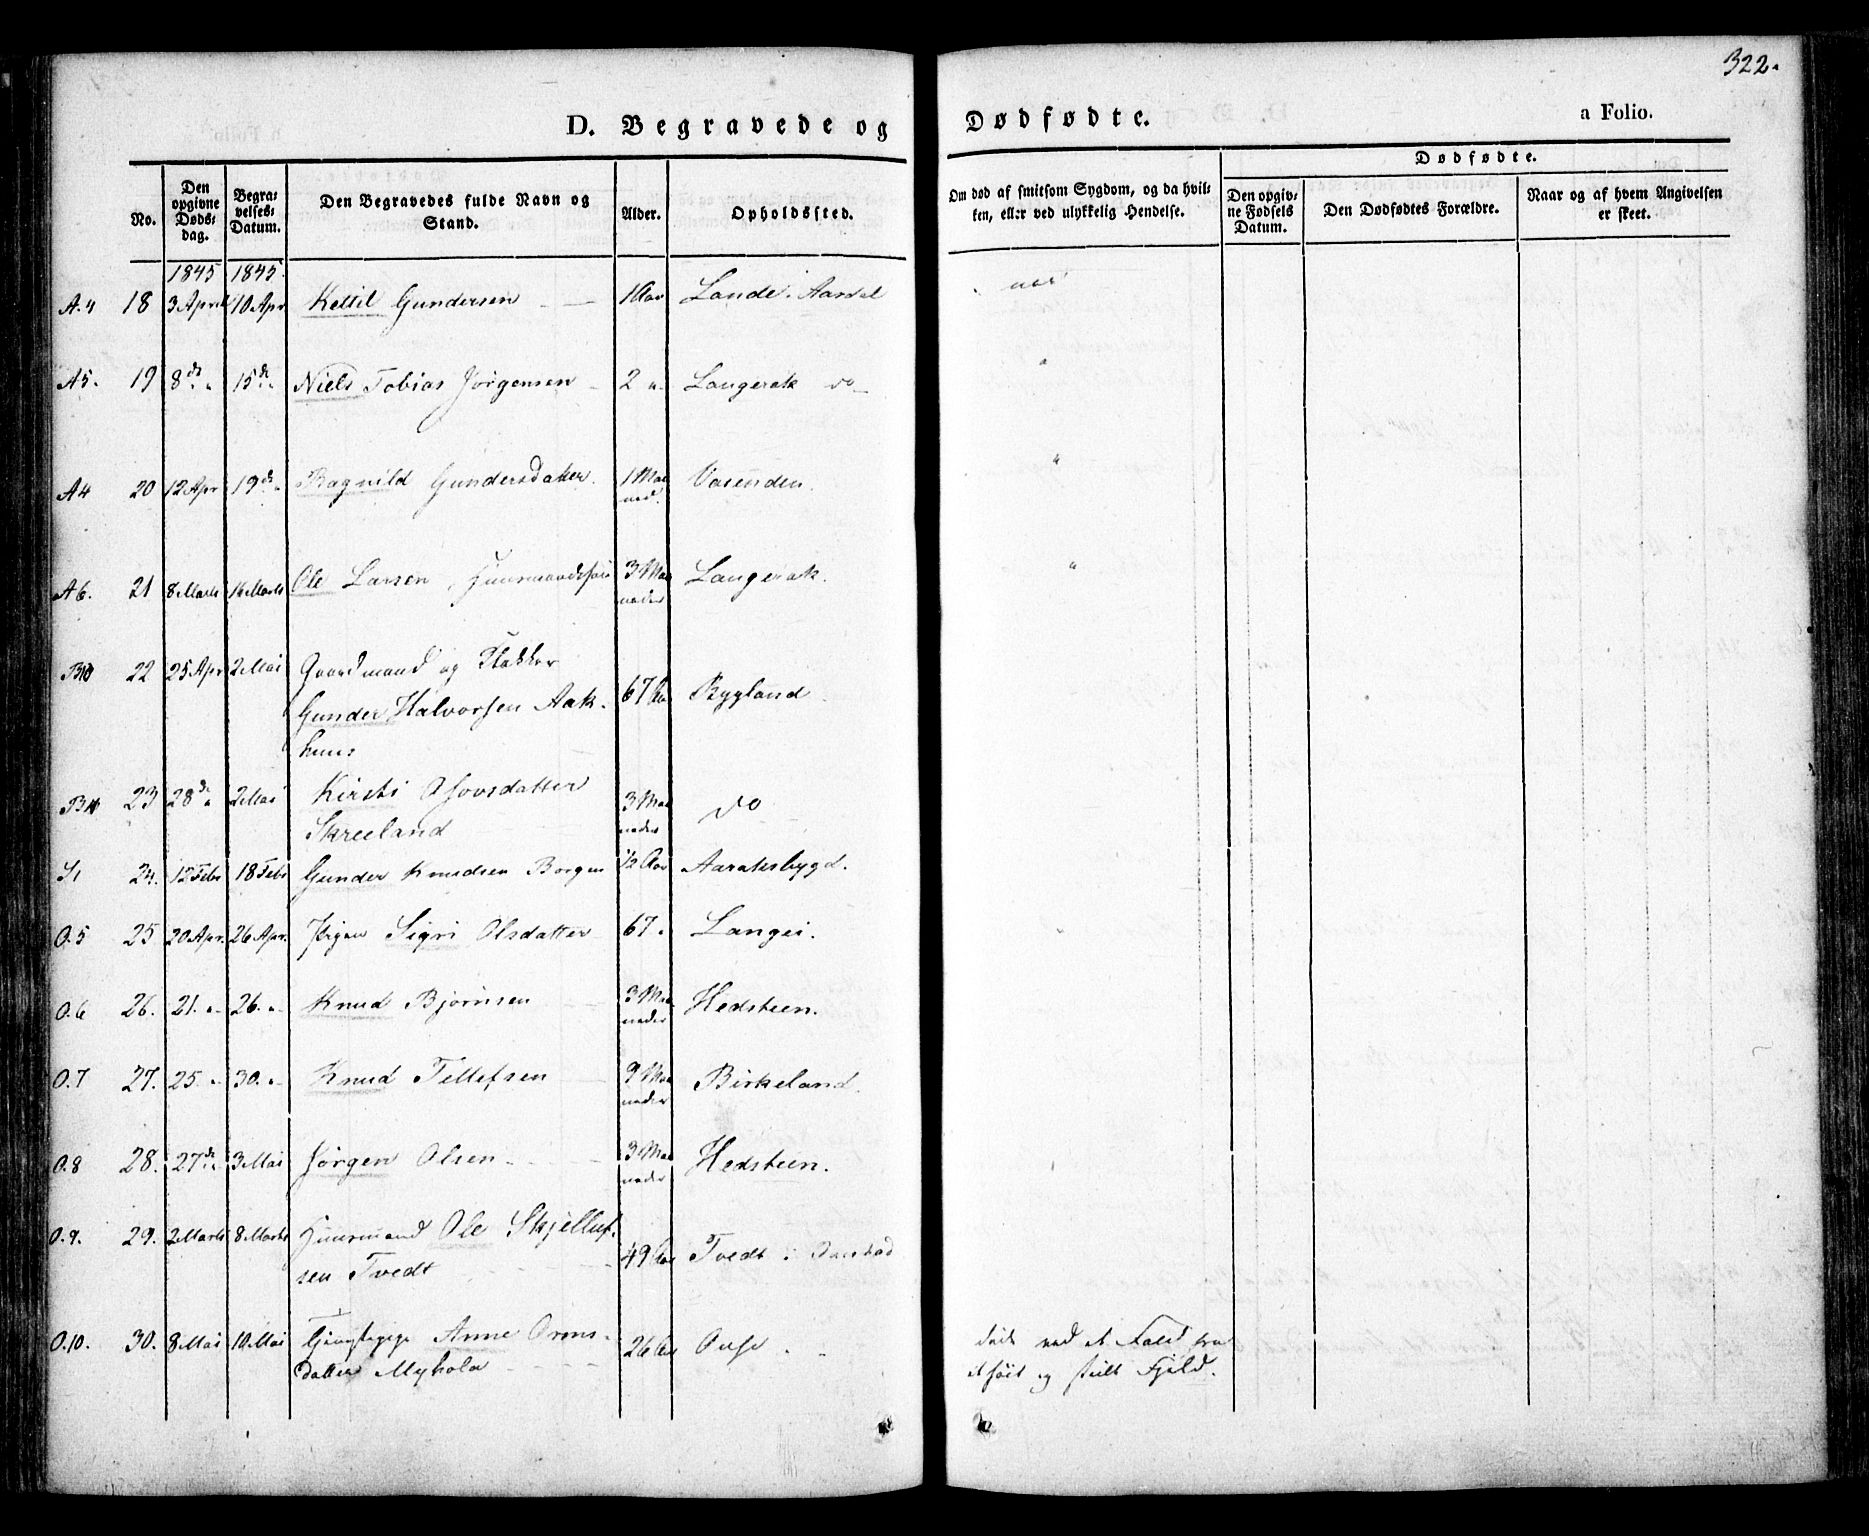 322.
D. Begravede og Dødfødte. a Folio.
No.
Den opgivne Døds-dag.
Begra-velses-Datum.
Den Begravedes fulde Navn og Stand.
Alder.
Opholdssted.
Om død af smitsom Sygdom, og da hvil-
ken, eller ved ulykkelig Hendelse.
Dødfødte.
Den opgiv-ne Fødsels Datum.
Den Dødfødtes Forældre.
Naar og af hvem Angivelsen er skeet.
1845 1845
A.4 18 3 April 10 Apr Kettil Gundersen 1 Aar Lande i Aardal
A5. 19 8de " 15de " Niels Tobias Jørgensen 2 " Langerak do "
A4 20 12 Apr 19de " Ragnild Gundersdatter. 1 Maa Vasenden. "
ned.
A6. 21 8 Marts 14 Marts Ole Larsen, Huusmandssøn 3 Maa Langerak. "
neder
B10 22 25 Apr 2 Mai Gaardmand og
Gunder Halvorsen Aak- 67 Aar Bygland
huus
B11 23 28de " 2 Mai Kirsti Osovsdatter 3 Maa do
Skreeland neder
S1 24. 12 Febr 18 Febr Gunder Knudsen Borgen ½ Aar Aaraksbygd.
O.5 25 20 Apr. 26 Apr. Pigen Sigri Olsdatter 67. Langei.
O.6 26. 21. " 26. " Knud Bjørnsen 3 Maa Hedsteen.
neder
O.7 27. 25. " 30. " Knud Tellefsen 9 Maa Birkeland.
neder
O.8 28. 27de " 3 Mai Jørgen Olsen 3 Maa Hedsteen.
neder
O.9. 29. 2 Marts 8 Marts Huusmand Ole Skjelluf-
sen Tvedt 49 Aar Tvedt i
O.10. 30. 8 Mai 10 Mai Anne Orms- 26 Aar døde ved et Fald fra
datter Myhola et høit og steilt Fjeld.